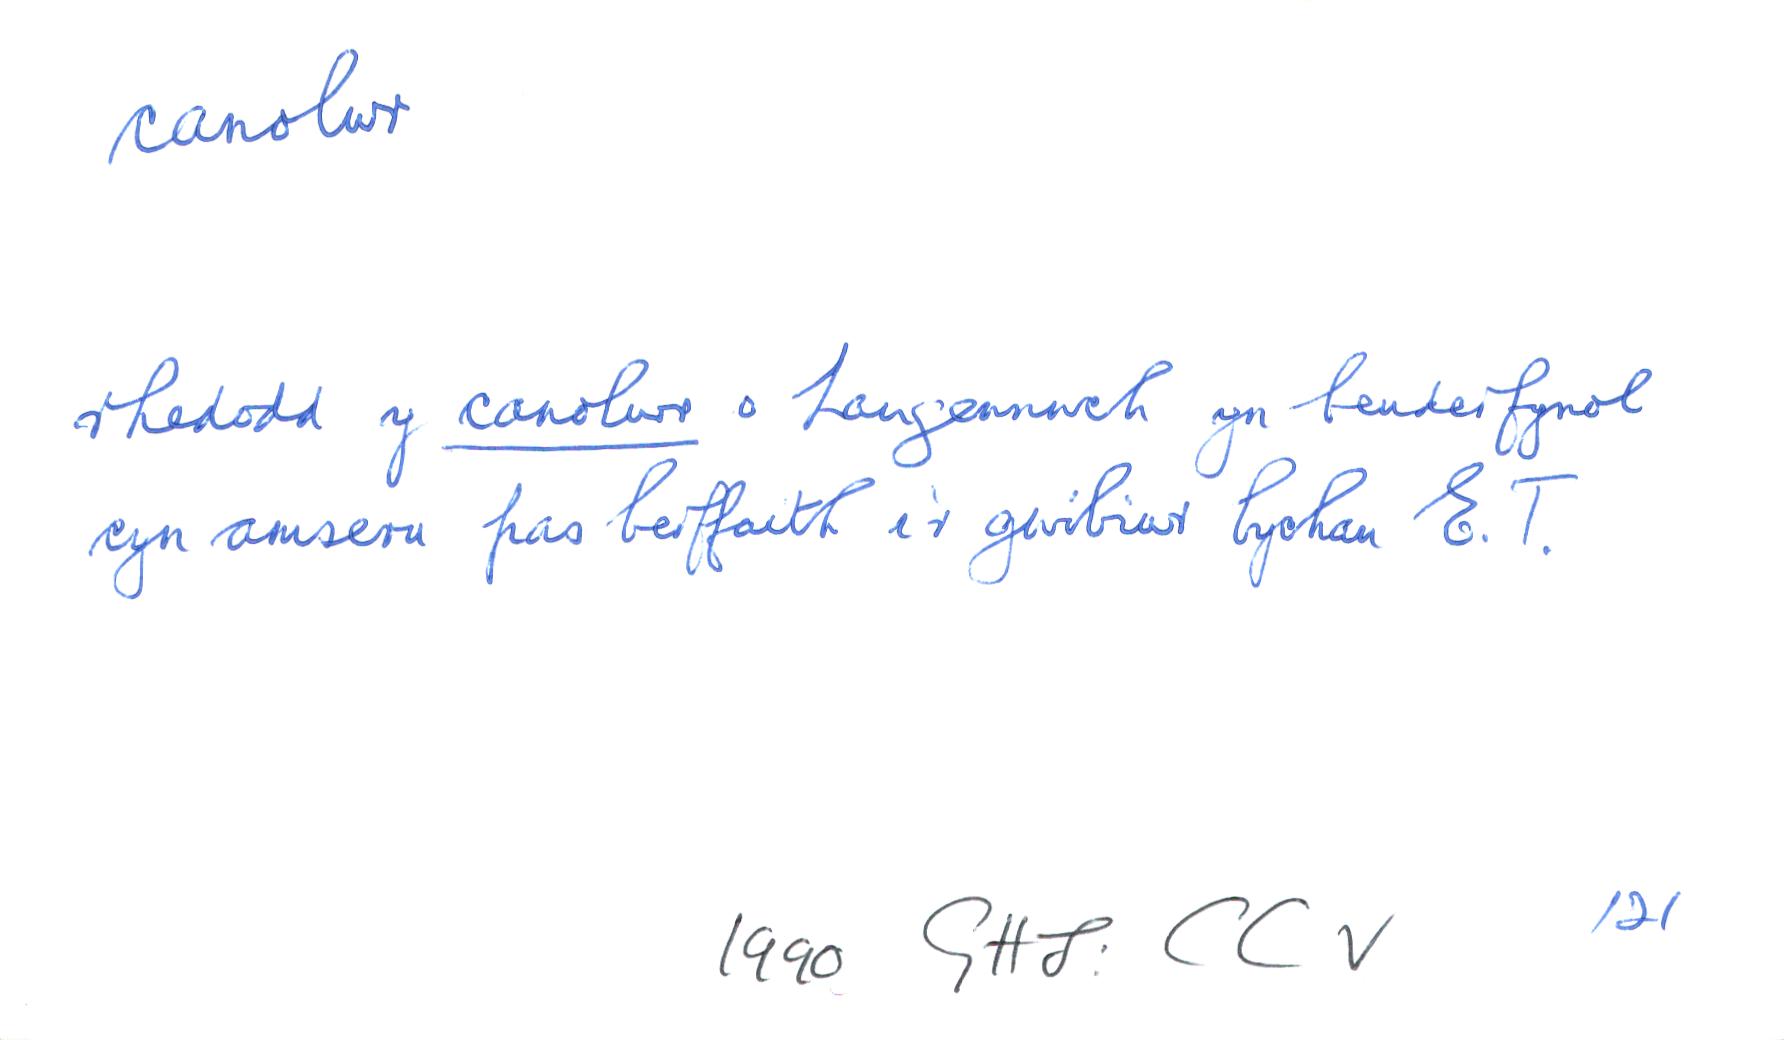 canolwr
rhedodd y canolwr o Langennwch yn benderfynol
cyn amseru pas berffaith i'r gwibiwr bychan E.T.
1990 GHJ: CCV 121